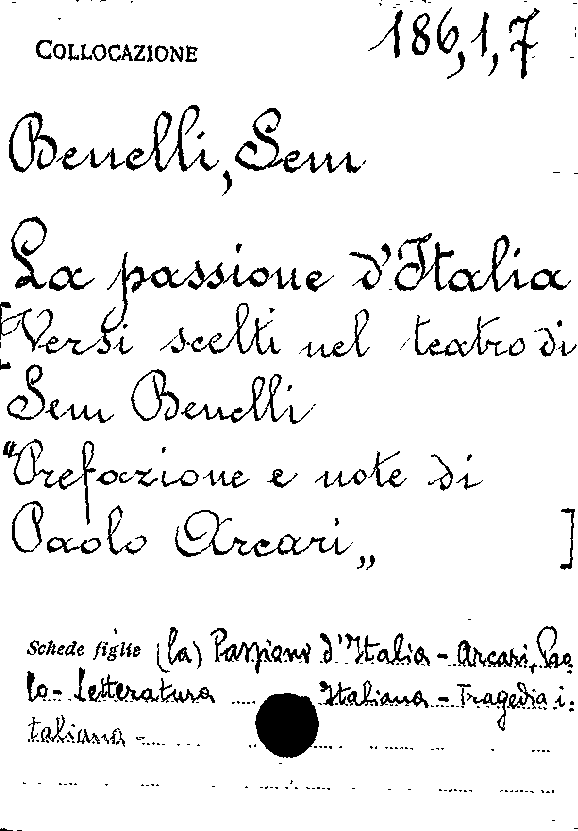 COLLOCAZIONE 186,1,7
Benelli, Sem
La passione d'Italia
[Versi scelti nel teatro di
Sem Benelli
"Prefazione e note di
Paolo Arcari„ ]
Schede figlie (La) Passione d'Italia - Arcari, Pao-
lo - Letteratura Italiana - Tragedia i-
taliana -